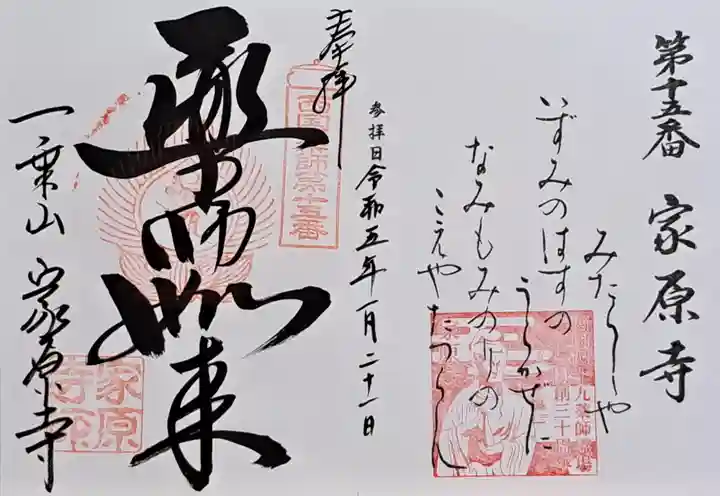 第十五番 家原寺
みたらしや
いずみのはすの
うらかぜに
なみもみのりの
こえやたつらん
参拝日令和五年一月二十一日
奉拝
西国薬師第十五番
薬師如来
一乗山 家原寺
家原寺印